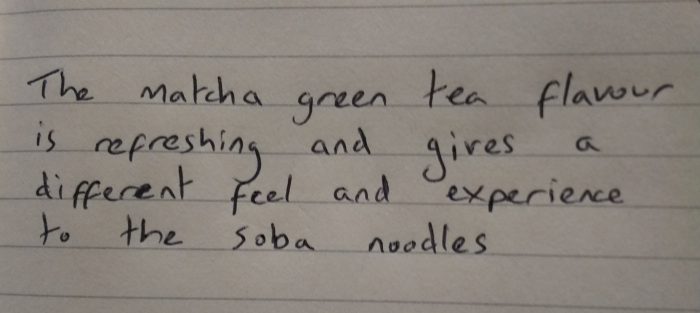 The matcha green tea flavour
is refreshing and gives a
different feel and experience
to the soba noodles